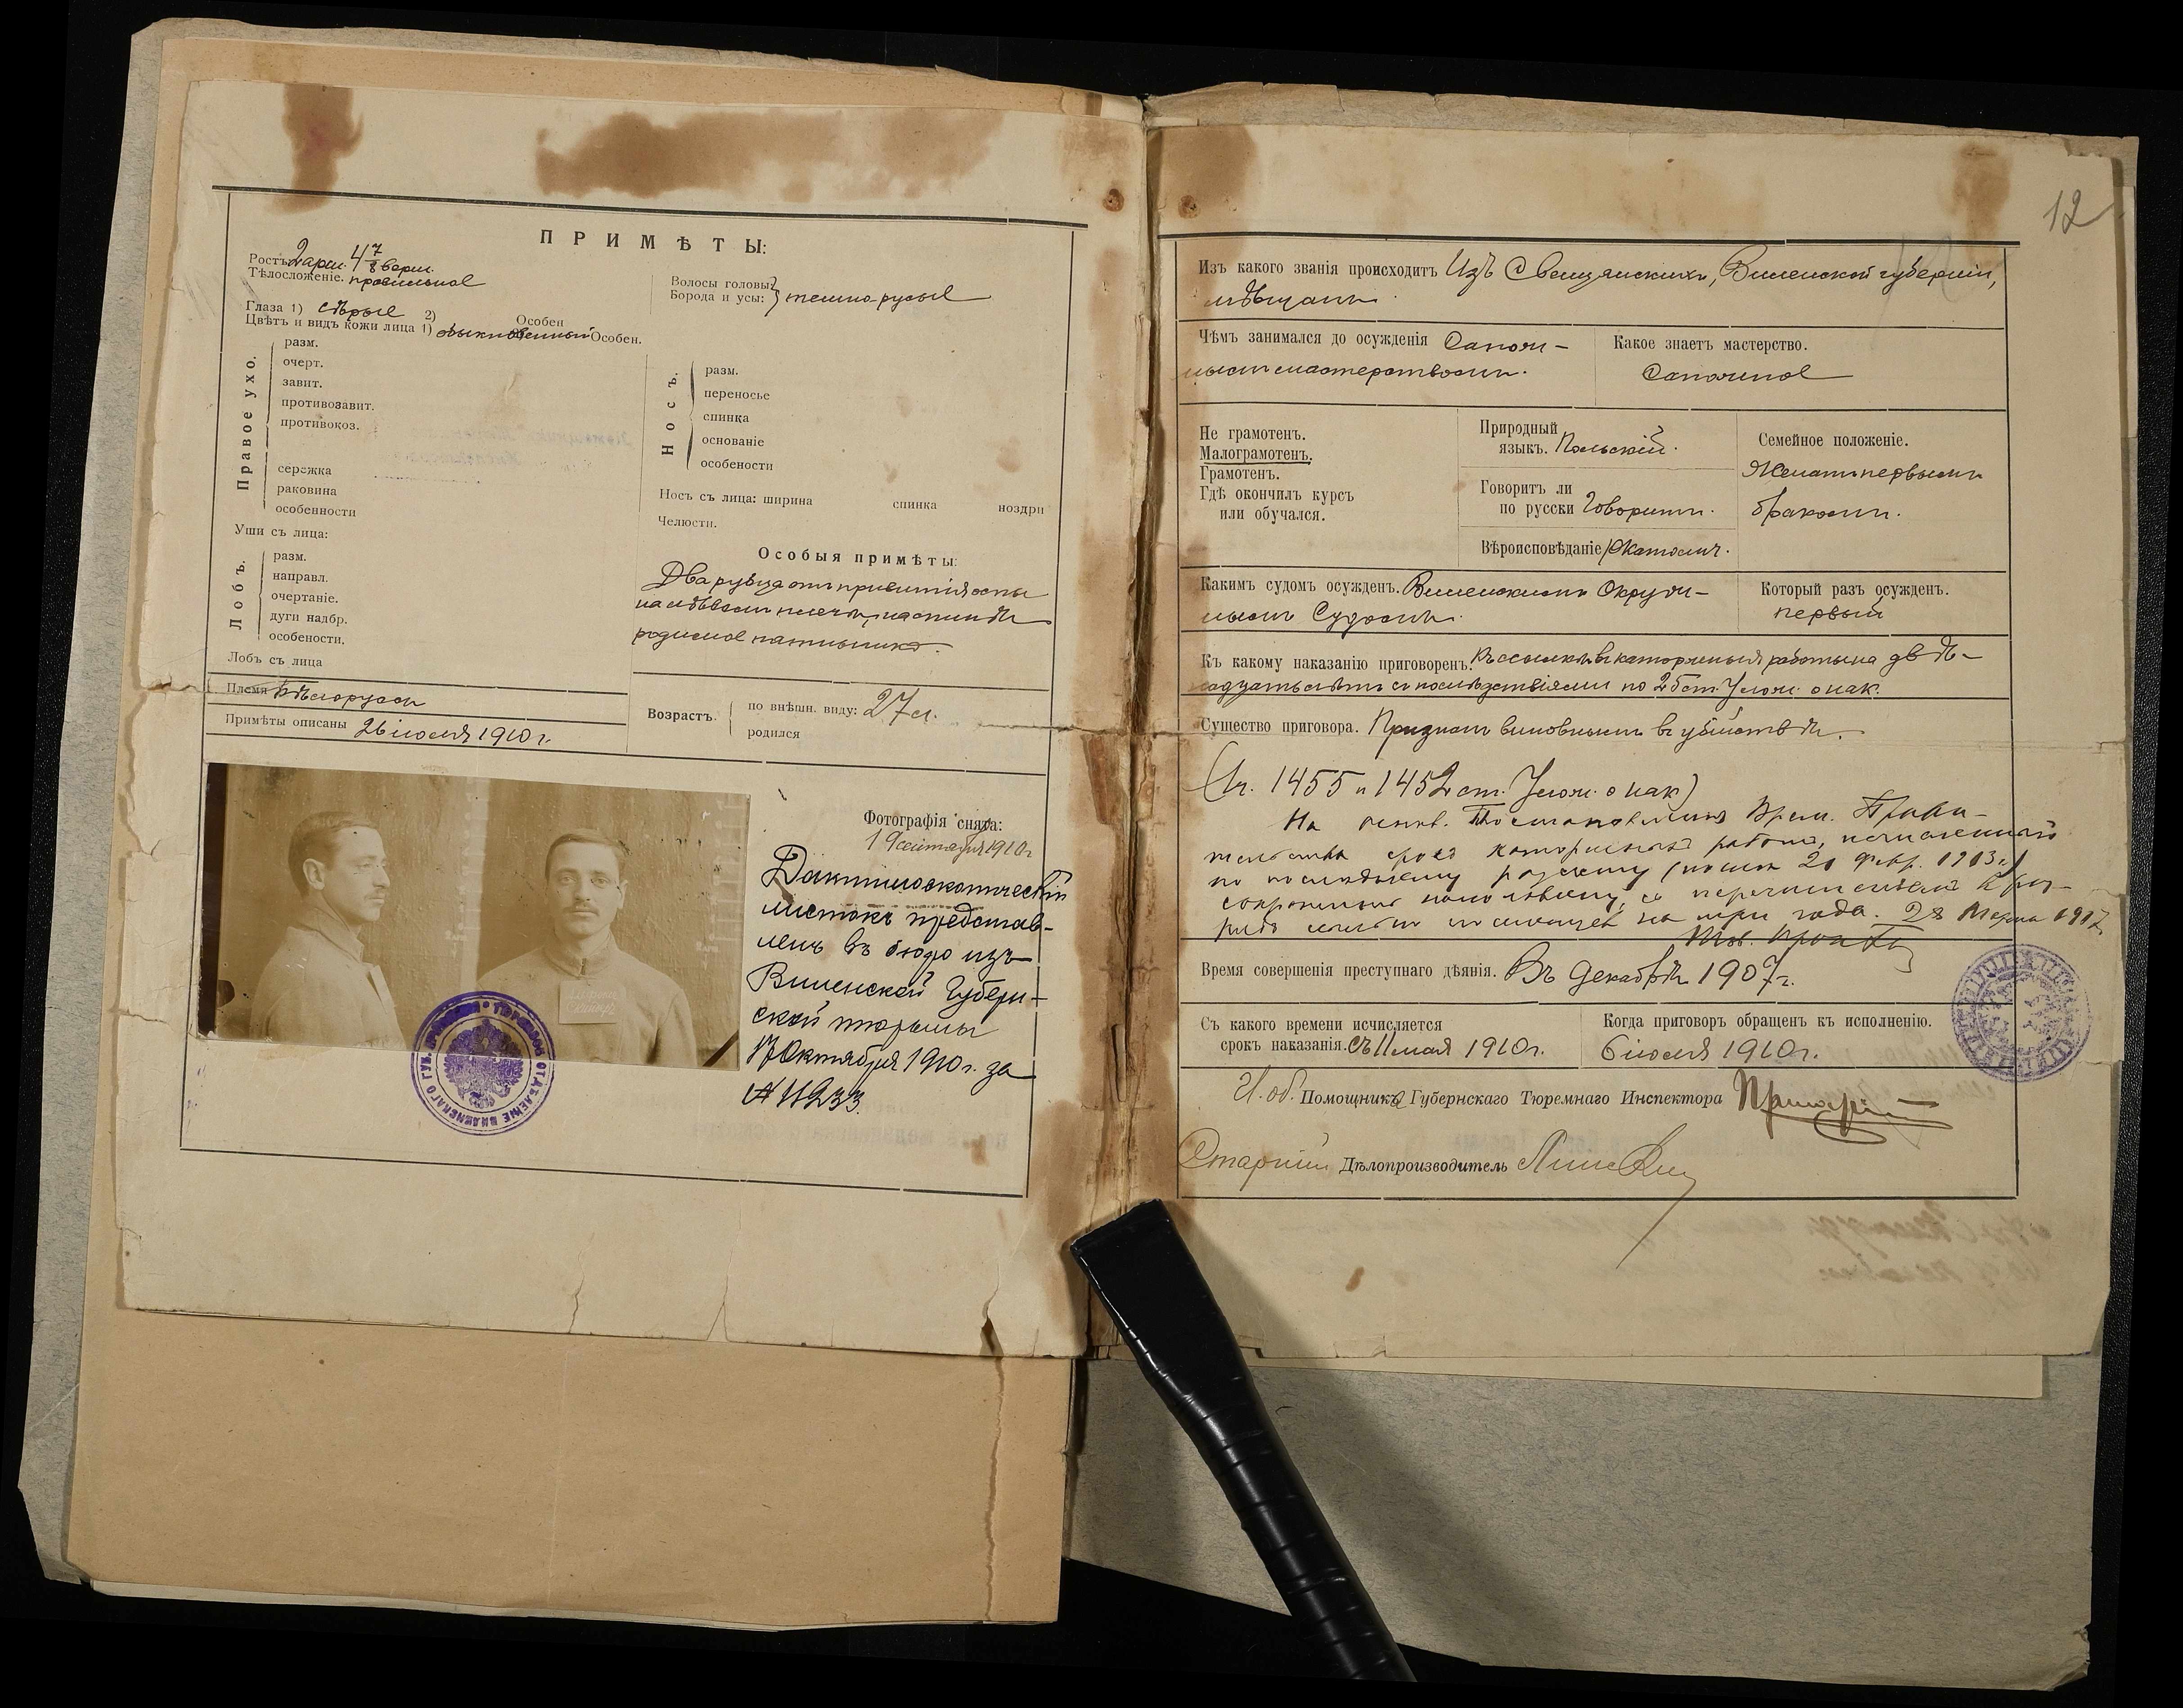 ПРИМѢТЫ:
Ростъ 2 арш. 4 7/8 верш.
Тѣлосложеніе. правильное
Волосы головы:
Борода и усы: } темно-русые
Глаза 1) сѣрые 2) Особен
Цвѣтъ и видъ кожи лица 1) обыкновенный Особен.
Правое ухо.
разм.
очерт.
завит.
противозавит.
противокоз.
сережка
раковина
особенности
Носъ.
разм.
переносье
спинка
основаніе
особености
Носъ съ лица: ширина спинка ноздри
Челюсти.
Уши съ лица:
Лобъ.
разм.
направл.
очертаніе.
дуги надбр.
особености.
Лобъ съ лица
Особыя примѣты:
Два рубца отъ привитія оспы
на лѣвомъ плечѣ, на спинѣ
родимое пятнышко.
Племя бѣлоруссъ
Примѣты описаны 26 іюля 1910 г.
Возрастъ.
по внѣшн. виду: 27 л.
родился
Фотографія снята:
19 сентября 1910 г
Дактилоскопическій
листокъ представ-
ленъ въ бюро изъ
Виленской Губерн-
ской тюрьмы
17 Октября 1910 г. за
№ 11233.
12
Изъ какого званія происходитъ Изъ Свенцянскихъ, Виленской губерніи,
мѣщанъ
Чѣмъ занимался до осужденія Сапож-
нымъ мастерствомъ.
Какое знаетъ мастерство.
Сапожное
Не грамотенъ.
Малограмотенъ.
Грамотенъ.
Гдѣ окончилъ курсъ
или обучался.
Природный
языкъ. Польскій.
Говоритъ ли
по русски Говоритъ.
Вѣроисповѣданіе Р.-Католич.
Семейное положеніе.
Женатъ первымъ
бракомъ.
Какимъ судомъ осужденъ. Виленскимъ Окруж-
нымъ Судомъ.
Который разъ осужденъ.
первый
Къ какому наказанію приговоренъ. Къ ссылкѣ въ каторжныя работы на двѣ-
надцать лѣтъ съ послѣдствіями по 25 ст. Улож. о нак.
Существо приговора. Признанъ виновнымъ въ убійствѣ.
(1 ч. 1455 и 1452 ст. Улож. о нак)
На основ. Постановленія Врем. Прави-
тельства срокъ каторжныхъ работъ, назначеннаго
по послѣднему разсчету (послѣ 21 февр. 1913 г.)
на три года. 28 Марта 1917
Время совершенія преступнаго дѣянія. Въ декабрѣ 1907 г.
Съ какого времени исчисляется
срокъ наказанія. Съ 11 мая 1910 г.
Когда приговоръ обращенъ къ исполненію.
6 іюля 1910 г.
И. об. Помощника Губернскаго Тюремнаго Инспектора
Старшій Дѣлопроизводитель